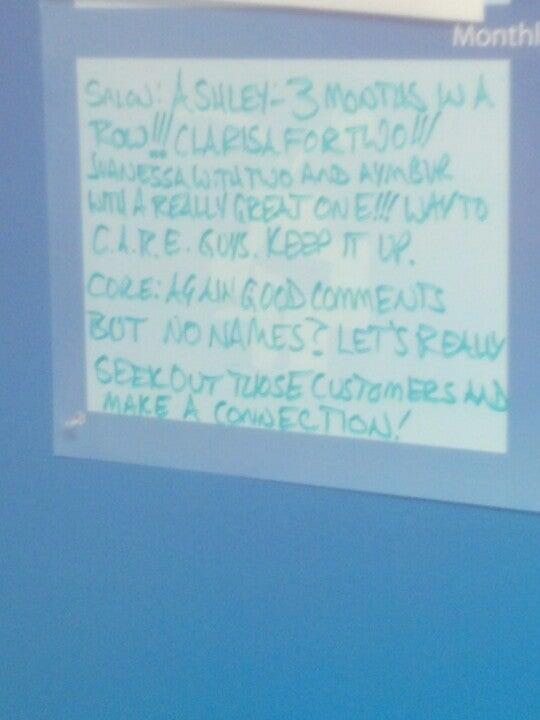 Monthl
SALON: ASHLEY- 3 MONTHS IN A
ROW!!! CLARISA FOR TWO!!!
JUANESSA WITH TWO AND AYMBUR
WITH A REALLY GREAT ONE!!! WAY TO
C.A.R.E. GUYS. KEEP IT UP.
CORE: AGAIN GOOD COMMENTS
BUT NO NAMES? LET'S REALLY
SEEK OUT THOSE CUSTOMERS AND
MAKE A CONNECTION!